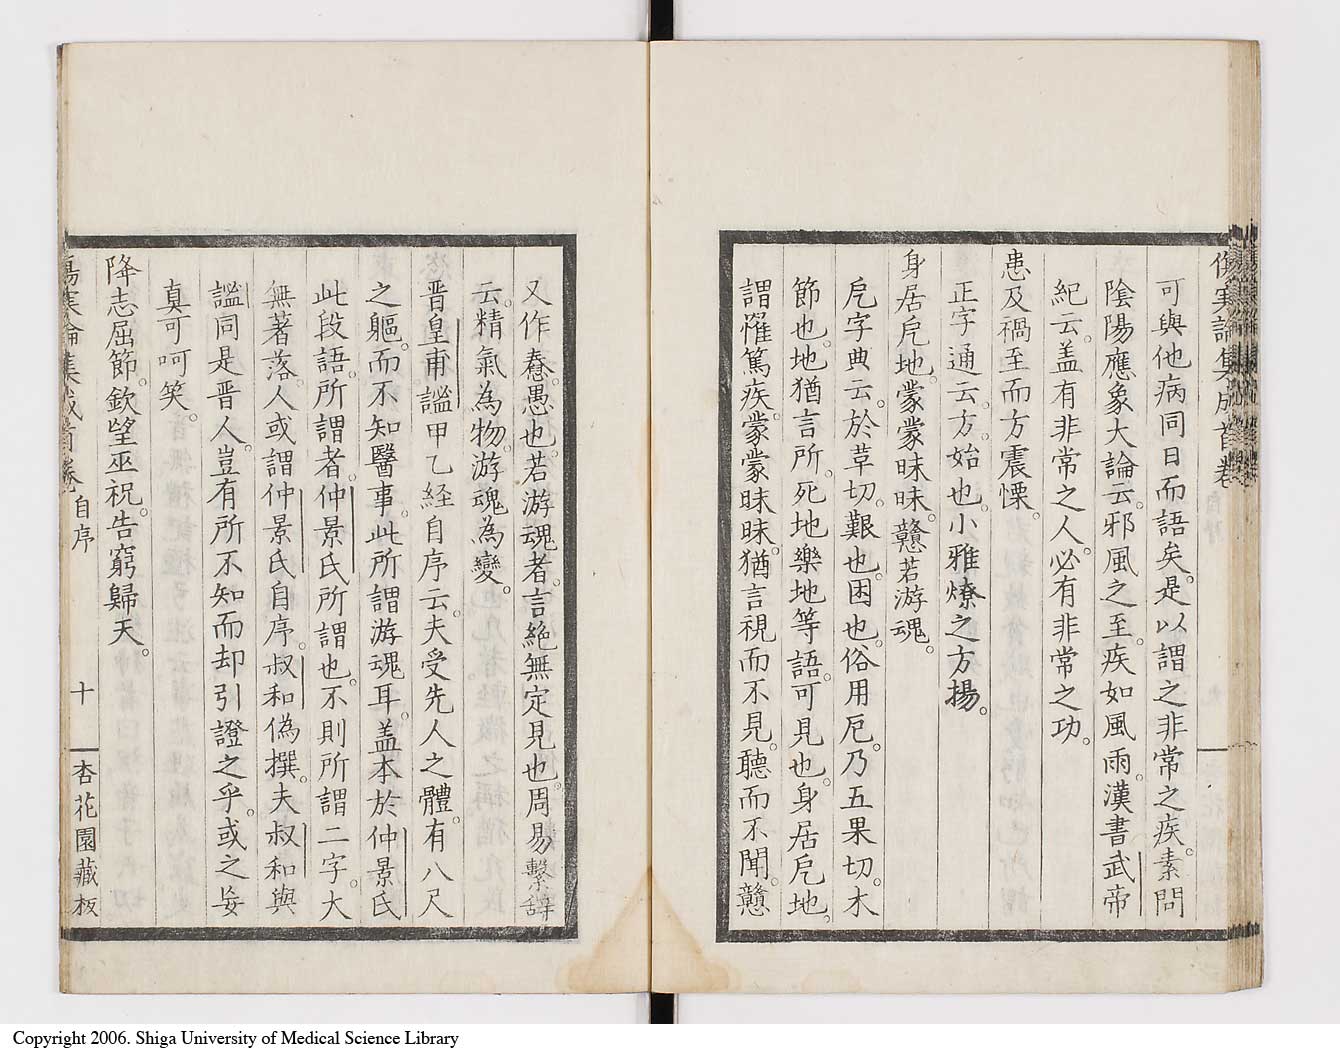 傷寒論集成首卷
可與他病同日而語矣。是以謂之非常之疾。素問
陰陽應象大論云。邪風之至。疾如風雨。漢書武帝
紀云。盖有非常之人。必有非常之功。
患及禍至而方震慄。
正字通云。方。始也。小雅燎之方揚。
身居戹地。蒙蒙昧昧。戇若游魂。
戹字典云。於草切。艱也。困也。俗用厄。乃五果切。木
節也。地猶言所。死地樂地等語。可見也。身居戹地。
謂罹篤疾。蒙蒙昧昧。猶言視而不見。聽而不聞。戇
又作惷。愚也。若游魂者。言絶無定見也。周易繫辭
云。精氣為物。游魂為變。
晉皇甫謐甲乙経自序云。夫受先人之體。有八尺
之軀。而不知醫事。此所謂游魂耳。盖本於仲景氏
此段語。所謂者。仲景氏所謂也。不則所謂二字。大
無著落。人或謂仲景氏自序。叔和偽撰。夫叔和與
謐同是晋人。豈有所不知而却引證之乎。或之妄
真可呵笑。
降志屈節。欽望巫祝。告窮歸天。
傷寒論集成首卷 自序 十 杏花園藏板
Copyright 2006. Shiga University of Medical Science Library